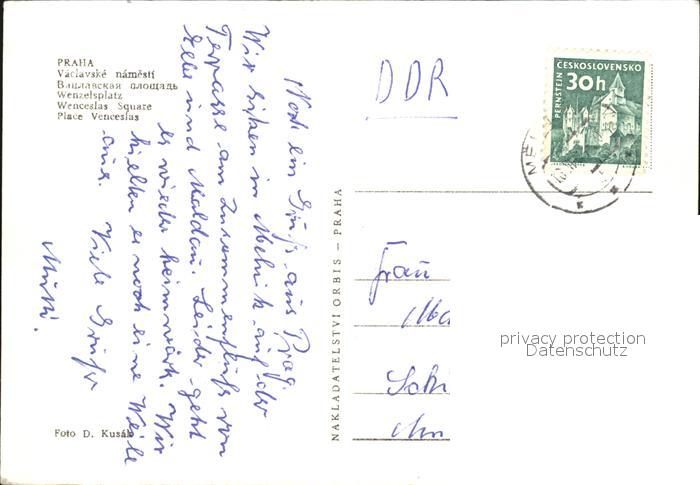 PRAHA
Václavské náměstí
Вацлавская площадь
Wenzelsplatz
Wenceslas Square
Place Venceslas
Noch ein Gruß aus Prag.
Wir sitzen in Melnik auf der
Terrasse am Zusammenfluß von
Elbe und Moldau. Leider geht
es wieder heimwärts. Wir
hielten es noch eine Weile
aus. Viele Grüße
Mutti.
Foto D. Kusák
NAKLADATELSTVÍ ORBIS — PRAHA
DDR
ČESKOSLOVENSKO
PERNŠTEJN
30h
MĚL
Frau
privacy protection
Datenschutz